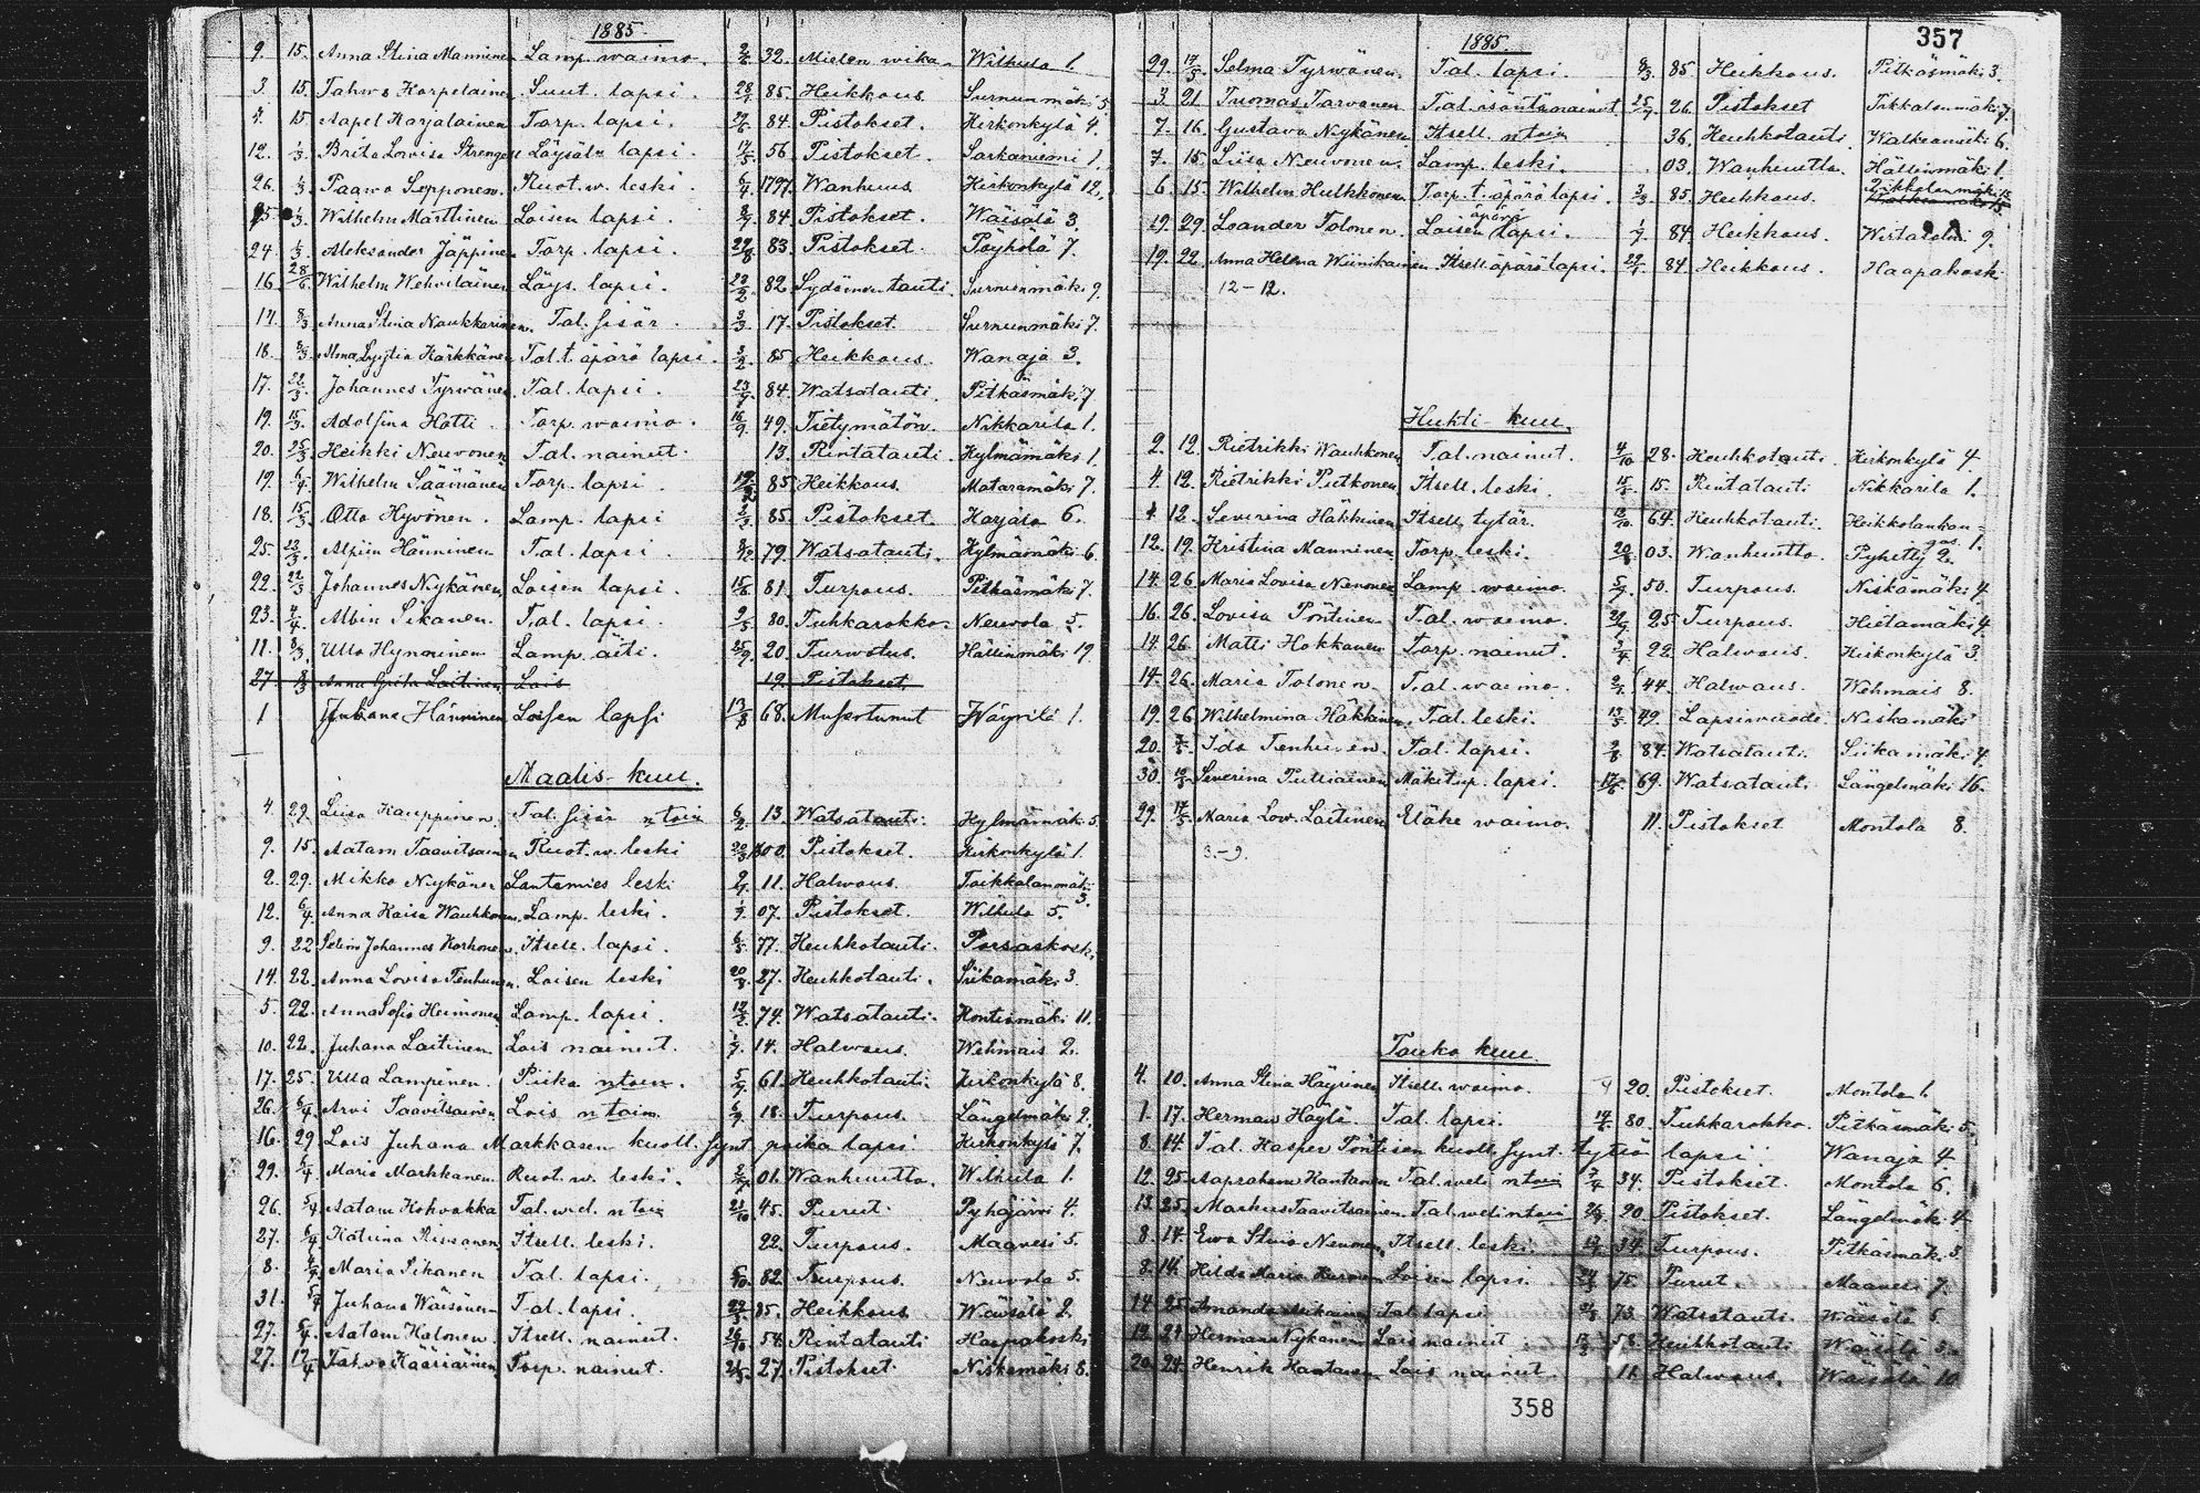 1885.
9. 15. Anna Stina Manninen Lamp. waimo. 32. Mielen wika. Wilhula 1.
3. 15. Tahwo Karpelainen Suut. lapsi. 85. Heikkous. Surnunmäki 5
15 Aapel Karjalainen Torp. lapsi. 84. Pistokset. Kirkonkylä 4.
12. 1/3. Brita Lovisa Löysäln lapsi. 56 Pistokset. Sarkaniemi 1.
26. 1/3. Paawo Sopponen. Ruot. w. leski. 1797. Wanhuus Kirkonkylä 12.
25. 1/3. Wilhelm Marttinen Loisen lapsi. 84. Pistokset. Wäisälä 3.
24. 1/3. Aleksander Jäppinen Torp. lapsi. 83. Pistokset. Pöyhölä 7.
16. Wilhelm Wehviläinen Löys. lapsi. 82. Sydämen tauti. Surnunmäki 9.
17. 8/3. Anna Stina Naukkarinen. Tal. sisär. 17. Pistokset. Surnunmäki 7.
18. 8/3. Alma Lyytia Kärkkänen Tal. t. äpärä lapsi. 85. Heikkous. Wanaja 3.
17. 22/3. Johannes Tyrwänen Tal. lapsi. 84. Watsatauti. Pitkäsmäki 7
19. 15/3. Adolfina Hotti. Torp. waimo. 49. Tietymätön. Nikkarila 1.
20. 25/3. Heikki Neuvonen Tal. nainut. 13. Rintatauti. Kylmämäki 1.
19. 6/4. Wilhelm Säämänen Torp. lapsi 85. Heikkous. Mataramäki 7.
18. 15/3. Otto Hyvönen. Lamp. lapsi 85. Pistokset. Harjala 6.
25. 22/3. Alpiin Hänninen Tal. lapsi. 79. Watsatauti. Kylmämäki 6.
22. 22/3 Johannes Nykänen Loisen lapsi. 81. Turpous. Pitkäsmäki 7.
23. 4/4. Albin Sikanen. Tal. lapsi. 80. Tuhkarokko. Neuvola 5.
11. 8/3. Ulla Hynninen Lamp. äiti. 20. Turwotus. Hällinmäki 19.
27. 8/3 Anna Grita Laitinen Lois 19. Pistokset.
1 Juhana Hänninen Loisen lapsi 13/8 68. Wäyrilä 1.
Maalis-kuu.
4. 29. Liisa Kauppinen. Tal. sisär ntoin 13. Watsatauti. Kylmämäki 5.
9. 15. Aatam Taavitsainen Ruot. w. leski 1800. Pistokset. Kirkonkylä 1.
2. 29. Mikko Nykänen Lautamies leski 11. Halwaus. Toikkalanmäki 3.
12. 6/4. Anna Kaisa Wauhkonen. Lamp. leski. 07. Pistokset. Wilhula 5.
9. 22. Selim Johannes Korhonen. Itsell. lapsi. 77. Keuhkotauti. Porsaskoski
14. 22. Anna Lovisa Tenhunen. Loisen leski 27. Keuhkotauti. Siikamäki 3.
5. 22. Anna Sofia Heimonen Lamp. lapsi. 74. Watsatauti. Kontiomäki 11.
10. 22. Juhana Laitinen. Lois nainut. 14. Halwaus. Wehmais 2.
17. 25. Ulla Lampinen. Piika ntoin. 61. Keuhkotauti. Kirkonkylä 8.
26. 6/4. Arvi Taavitsainen Lois ntoin. 18. Turpous. Längelmäki 2.
16. 29 Lois Juhana Markkasen kuoll. synt poika lapsi. Kirkonkylä 7.
29. 5/4 Maria Markkanen. Ruot. w. leski. 01. Wanhuutta. Wilhula 1.
26. 5/4 Aatam Kohvakka Tal. wel. ntoin 45. Purut. Pyhäjärvi 4.
27. 6/4. Katrina Rissanen, Itsell. leski. 22. Turpous. Maavesi 5.
8. Maria Sikanen Tal. lapsi. 82. Turpous. Neuvola 5.
31. 5/4 Juhana Wäisänen Tal. lapsi. 85. Heikkous Wäisälä 2.
27. 5/4. Aatam Halonen. Itsell. nainut. 54. Rintatauti Haapakoski
27. 12/4 Tahvo Kääriäinen Torp. nainut. 27. Pistokset Niskamäki 8.
357
1885.
29. 17/3. Selma Tyrwänen. Tal. lapsi. 8/3. 85 Heikkous. Pitkäsmäki 3.
3. 21 Tuomas Tarvonen Tal. isäntä nainut 26. Pistokset Tikkalanmäki 7.
7. 16. Gustava Nykänen. Itsell. ntoin 36. Keuhkotauti Walkeamäki 6.
7. 15. Liisa Neuvonen. Lamp. leski. 03. Wanhuutta. Hällinmäki 1.
6. 15. Wilhelm Hulkkonen. Torp. t. äpärä lapsi. 3/3. 85. Heikkous.
19. 29. Leander Tolonen. Loisen äpärä lapsi. 84. Heikkous. Wirtasalmi 9.
19. 22. Anna Helena Wiinikainen. Itsell. äpärä lapsi. 84 Heikkous. Haapakoski
12-12.
Huhti-kuu.
2. 12. Rietrikki Wauhkonen Tal. nainut. 4/10 28. Keuhkotauti. Kirkonkylä 4
4. 12. Rietrikki Putkonen Itsell. leski. 15. Rintatauti Nikkarila 1.
4. 12. Severina Häkkinen Itsell. tytär. 64. Keuhkotauti. Heikkolankangas 1.
12. 19. Kristina Manninen Torp. leski. 03. Wanhuutta. Pyhitty 2.
14. 26 Maria Lovisa Nenonen Lamp. waimo. 50. Turpous. Niskamäki 4
16. 26. Lovisa Pöntinen Tal. waimo. 25 Turpous. Hietamäki 4.
14. 26. Matti Hokkanen Torp. nainut. 22. Halwaus. Kirkonkylä 3.
14. 26. Maria Tolonen. Tal. waimo. 44. Halwaus. Wehmais 8.
19. 26 Wilhelmina Häkkinen. Tal. leski. 49. Lapsivuode. Niskamäki
20. Ida Tenhunen. Tal. lapsi. 84. Watsatauti. Siikamäki 4.
30. Severina Pulliainen Mäkitup. lapsi. 69. Watsatauti Längelmäki 16.
29. 17/5. Maria Lov. Laitinen Eläke waimo. 11. Pistokset Montola 8.
3.-9.
Touko kuu.
4. 10. Anna Stina Häyrinen Itsell. waimo. 20. Pistokset. Montola 1.
1. 17. Herman Häylä. Tal. lapsi. 80. Tuhkarokko. Pitkäsmäki 5.
8. 14. Tal. Kasper Pöntisen kuoll. synt. tyttö lapsi Wanaja 4.
12. 25. Aapraham Hantanen Tal. weli ntoin 34. Pistokset. Montola 6.
13. 25. Markus Taavitsainen. Tal. weli ntoin 20. Pistokset. Längelmäki 4
8. 14. Ewa Stina Nenonen Itsell. leski. 34. Turpous. Pitkäsmäki 3.
8. 14. Hilda Maria Loisen lapsi. 75. Purut. Maavesi 7.
14 25 Amanda Tal. lapsi 73. Watsatauti. Wäisälä 5.
12. 24 Herman Nykänen Lois nainut 58. Keuhkotauti Wäisälä 5.
20. 24. Henrik Hantanen Lois nainut. 11. Halwaus. Wäisälä 10
358